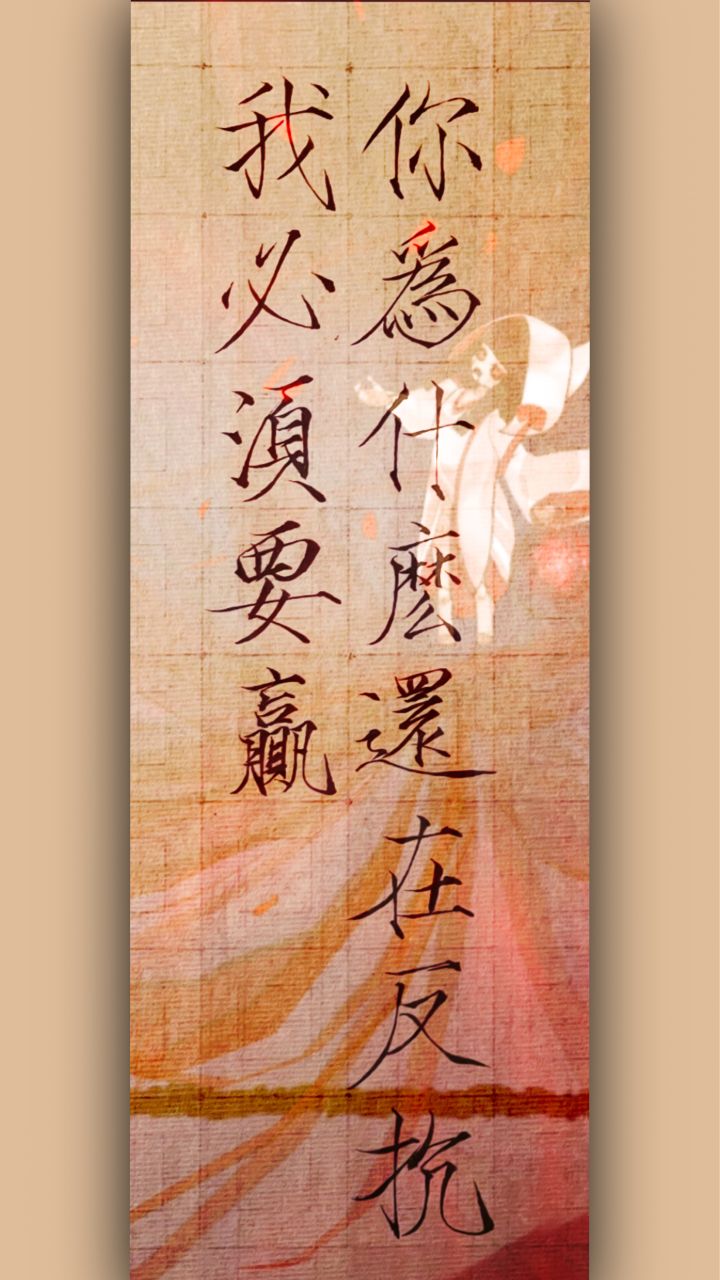 你為什麼還在反抗
我必須要贏